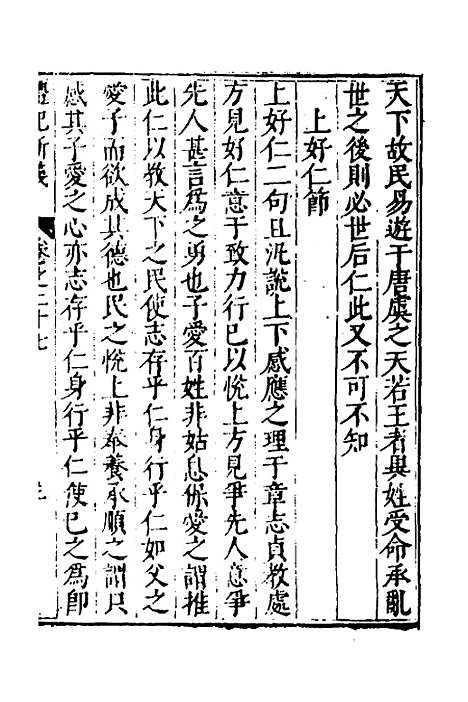 天下故民易遊于唐虞之天若王者與姓受命承亂
世之後則必世后仁此又不可不知
上好仁節
上好仁二句且汎說上下感應之理于章志貞教處
方見好仁意于致力行已以悅上方見爭先人意爭
先人甚言為之勇也子愛百姓非姑息保愛之謂推
此仁以教天下之民使志存乎仁身行乎仁如父之
愛子而欲成其德也民之悅上非奉養承順之謂只
感其子愛之心亦志存乎仁身行乎仁使已之為卽
禮記新義
卷之二十七
三